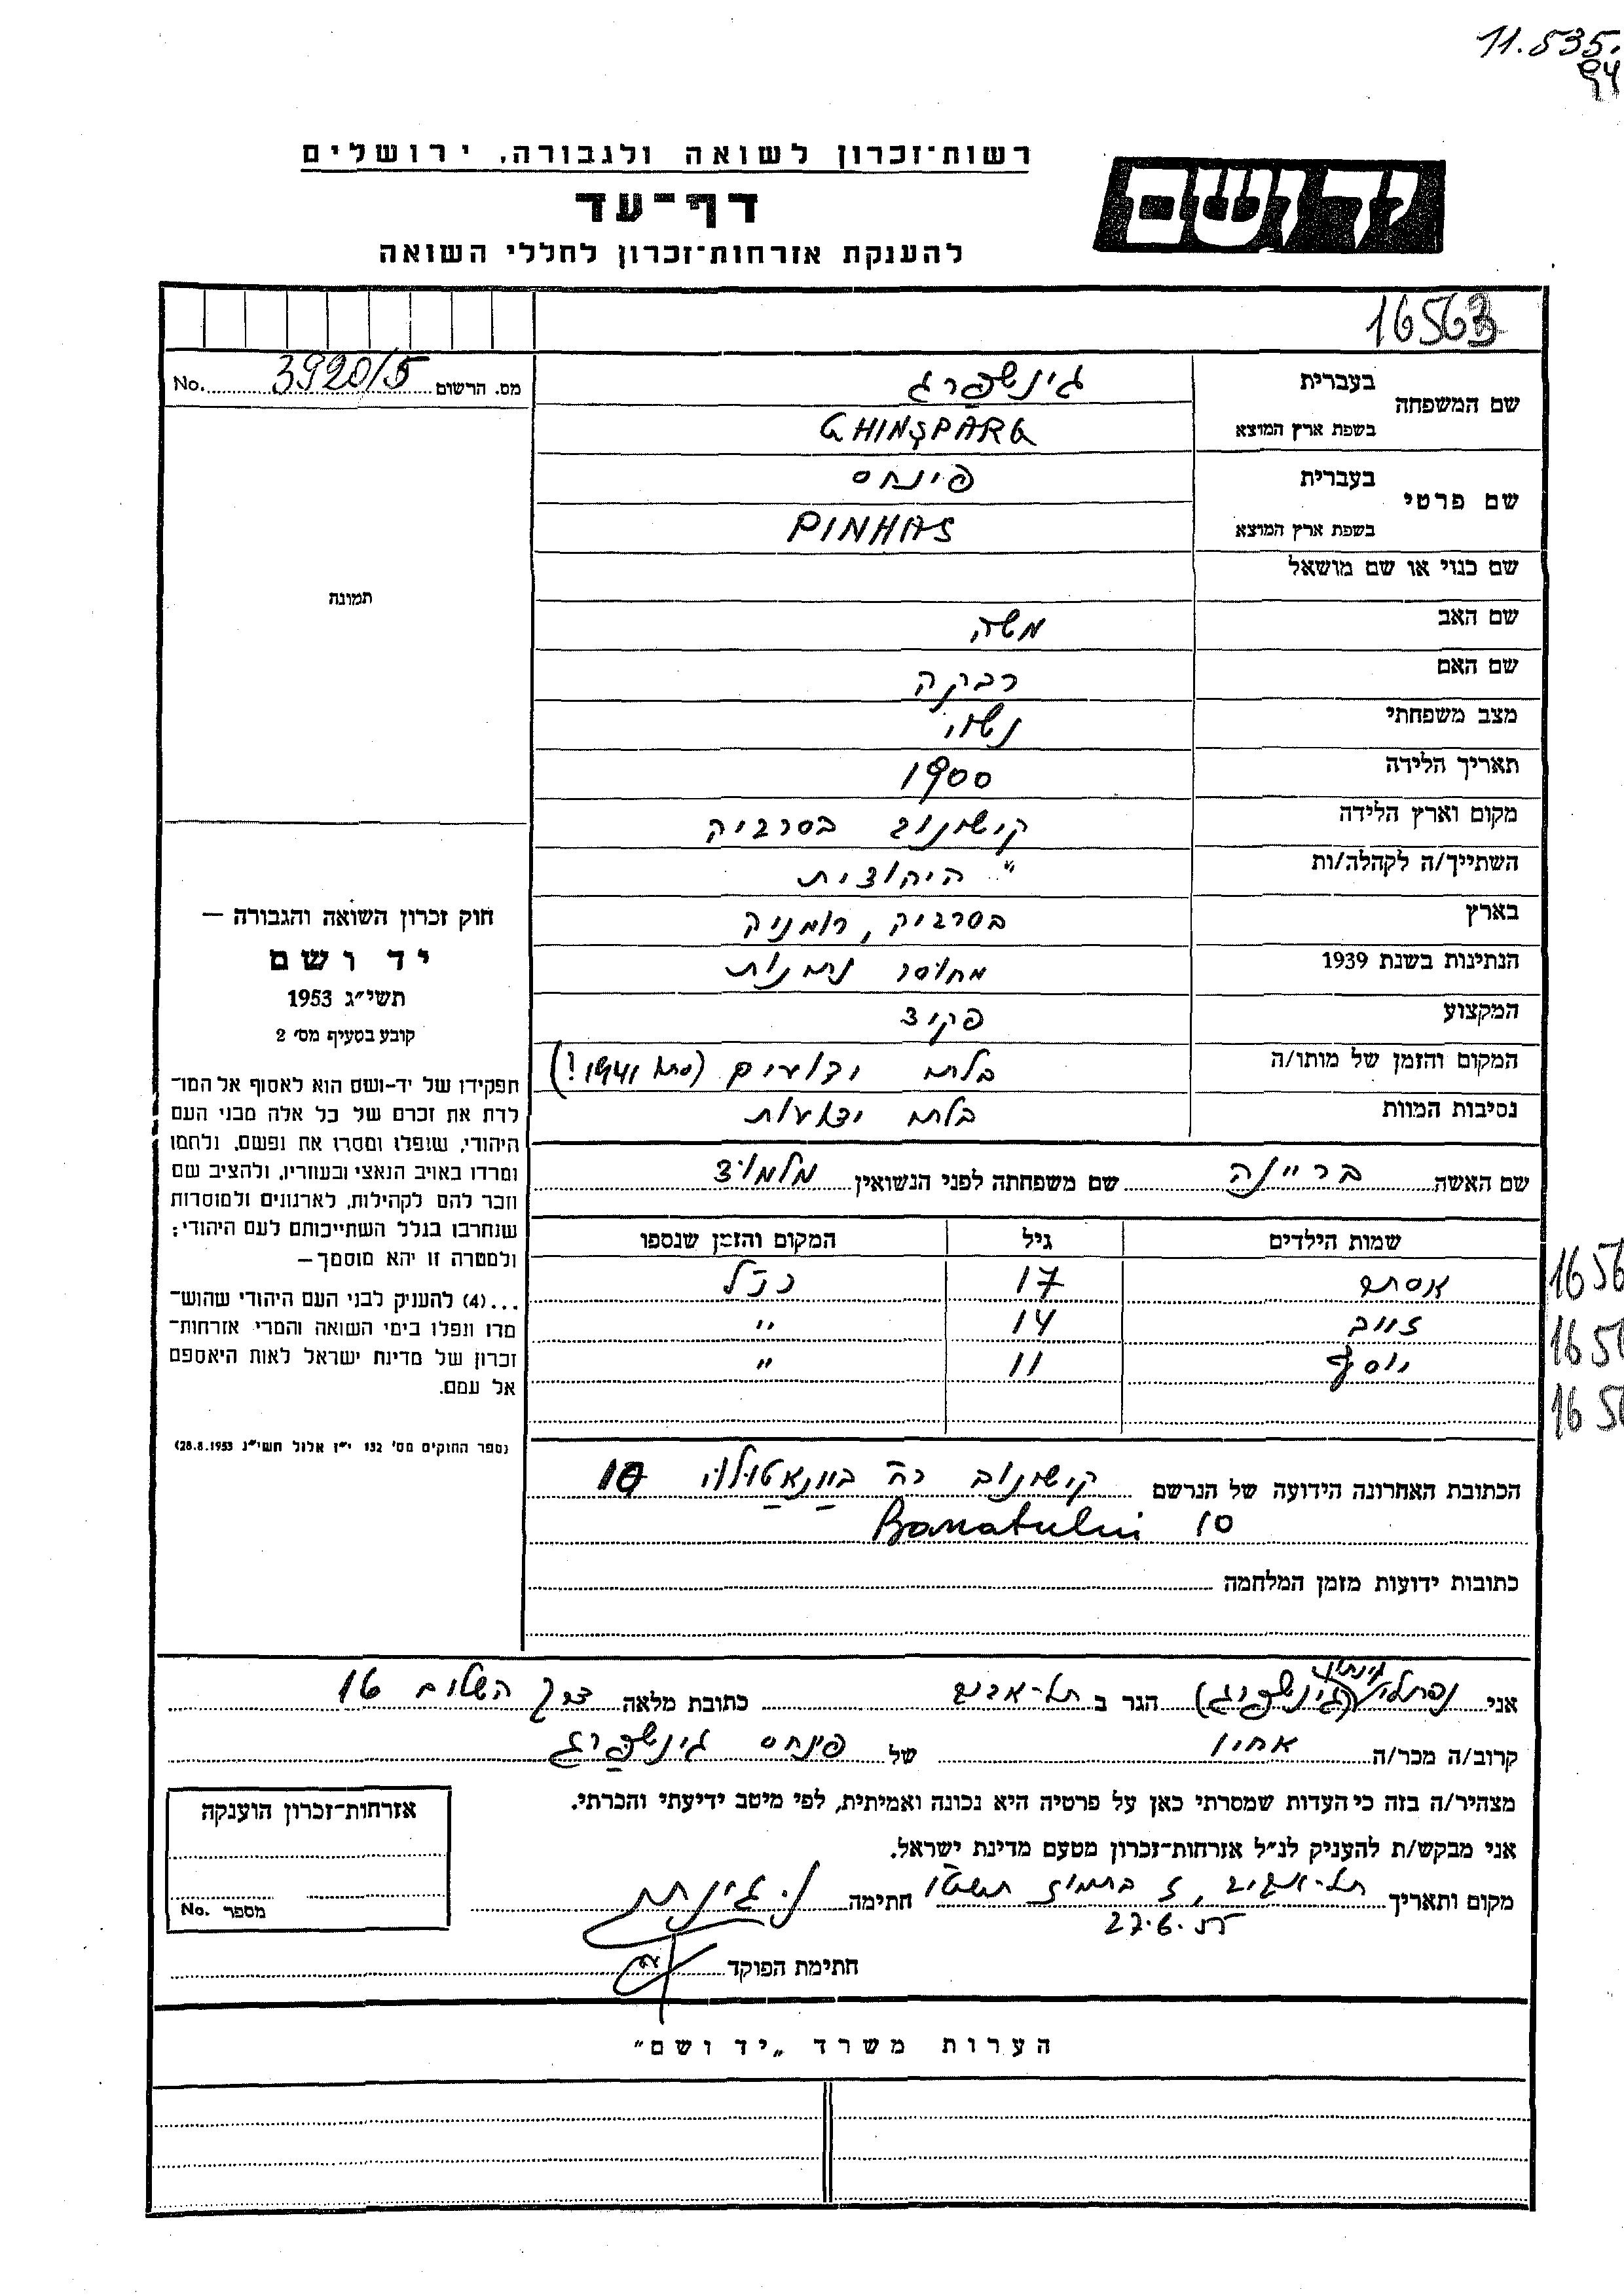 11.535.
94
רשות־זכרון לשואה ולגבורה, ירושלים
יד ושם
דף־עד
להענקת אזרחות־זכרון לחללי השואה
16563
מס. הרשום 3920/5 No.
שם המשפחה
בעברית גינשפרג
בשפת ארץ המוצא GHINŞPARG
שם פרטי
בעברית פינחס
בשפת ארץ המוצא PINHAS
שם כנוי או שם מושאל
שם האב משה
שם האם רבקה
מצב משפחתי נשוי
תאריך הלידה 1900
מקום וארץ הלידה קישינוב בסרביה
השתייך/ה לקהלה/ות " היהודית
בארץ בסרביה, רומניה
הנתינות בשנת 1939 מחוסר נתינות
המקצוע פקיד
המקום והזמן של מותו/ה בלתי ידועים (סתו 1941!)
נסיבות המוות בלתי ידועות
שם האשה בריינה שם משפחתה לפני הנשואין מלמוד
שמות הילדים גיל המקום והזמן שנספו
אסתר 17 כנ"ל
זאב 14 "
יוסף 11 "
1656
165
165
הכתובת האחרונה הידועה של הנרשם קישינוב רח' 10
Banatului 10
כתובות ידועות מזמן המלחמה
תמונה
חוק זכרון השואה והגבורה —
יד ושם
תשי״ג 1953
קובע בסעיף מס׳ 2
תפקידו של יד-ושם הוא לאסוף אל המו־
לדת את זכרם של כל אלה מבני העם
היהודי, שנפלו ומסרו את נפשם, נלחמו
ומרדו באויב הנאצי ובעוזריו, ולהציב שם
וזכר להם לקהילות, לארגונים ולמוסדות
שנחרבו בגלל השתייכותם לעם היהודי;
ולמטרה זו יהא מוסמך —
...(4) להענק לבני העם היהודי שהוש־
מדו ונפלו בימי השואה והמרי אזרחות־
זכרון של מדינת ישראל לאות היאספם
אל עמם.
(ספר החוקים מס׳ 132 י״ז אלול תשי״ג 28.8.1953)
אני נפתלי גינתון (גינשפרג) הגר ב תל-אביב כתובת מלאה דרך השלום 16
קרוב/ה מכר/ה אחיו של פינחס גינשפרג
מצהיר/ה בזה כי העדות שמסרתי כאן על פרטיה היא נכונה ואמיתית, לפי מיטב ידיעתי והכרתי.
אני מבקש/ת להעניק לנ״ל אזרחות־זכרון מטעם מדינת ישראל.
מקום ותאריך תל-אביב, ז בתמוז תשט"ו חתימה
27.6.55
חתימת הפוקד
אזרחות־זכרון הוענקה
מספר No.
הערות משרד „יד ושם״